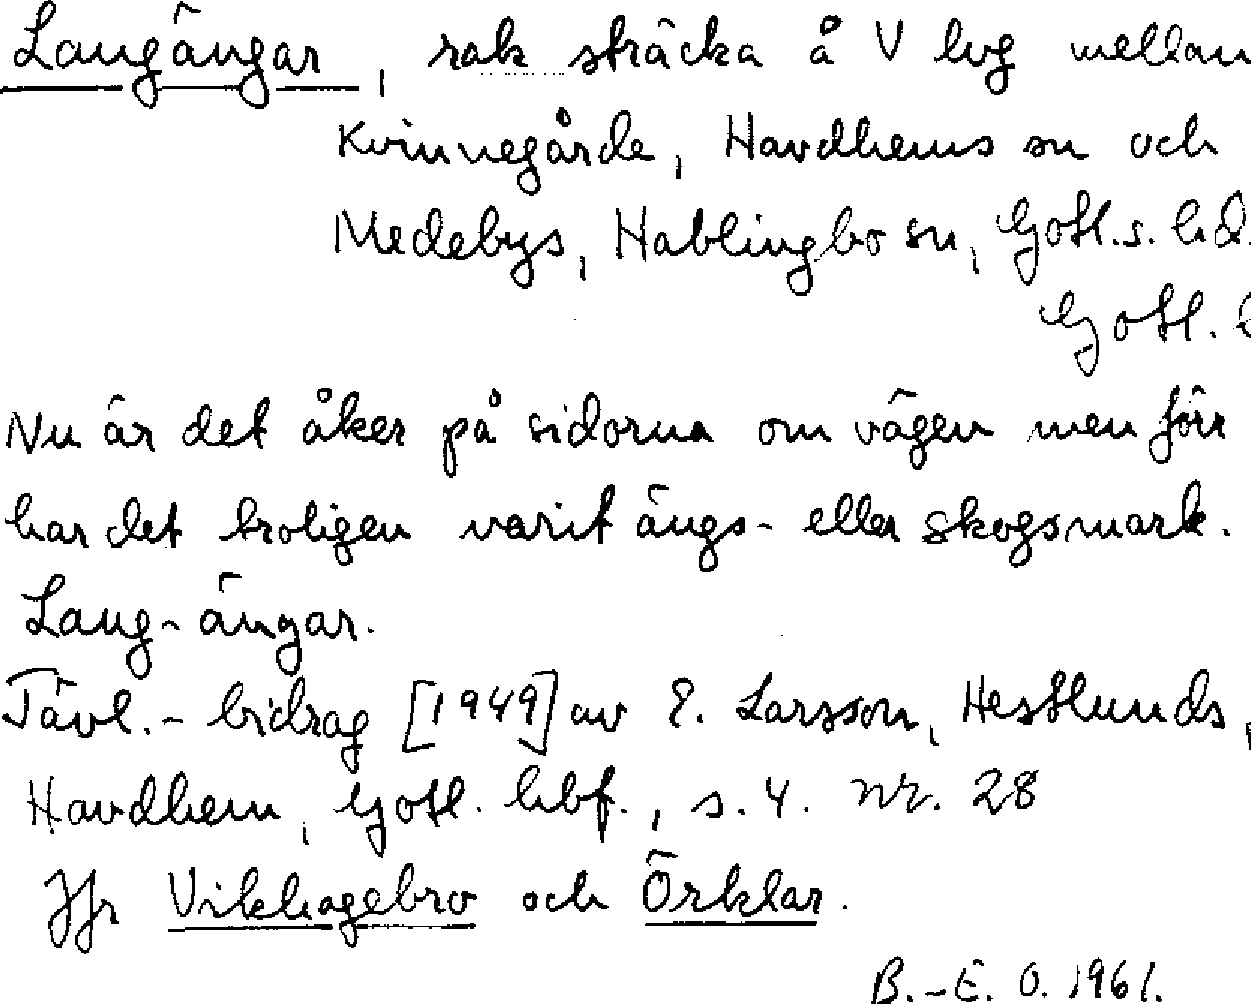 Langängar, rak sträcka å V lvg mellan
Kvinnegårde, Havdhems sn och
Medebys, Hablingbo sn, Gotl.s. hd.
Gotl.
Nu är det åker på sidorna om vägen men förr
har det troligen varit ängs- eller skogsmark.
Lang-ängar.
Tävl.-bidrag [1949] av E. Larsson, Hestlunds,
Havdhem, Gotl. hbf., s. 4. nr. 28
Jfr Vikhagebro och Örklar.
B.-E. O. 1961.